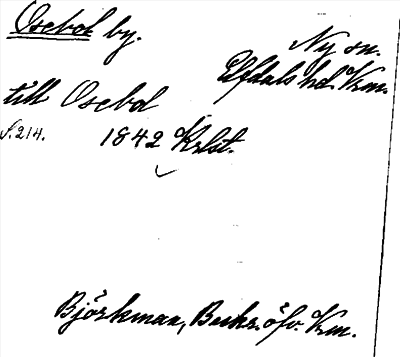 Osebol by.
Ny sn.
Elfdals hd. Vrm.
till Osebol
S. 214. 1842 Krlst.
Björkman, Beskr. öfv. Vrm.